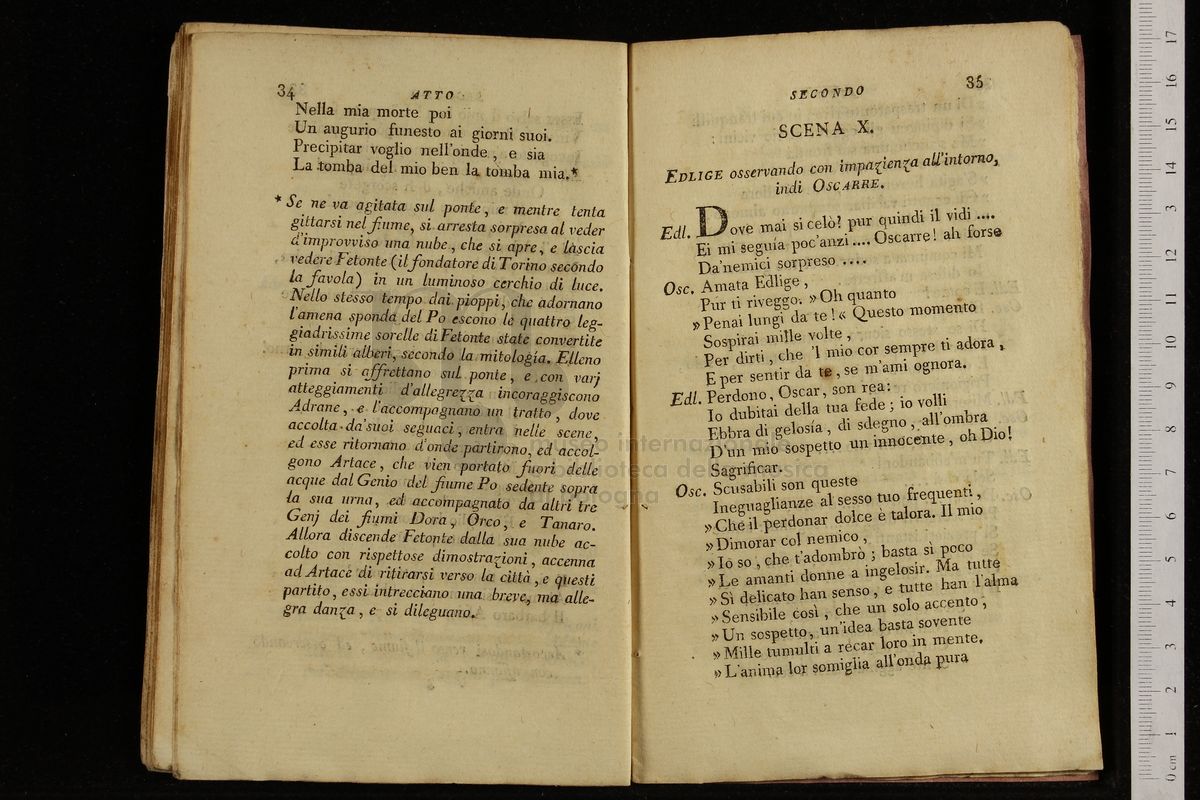 34 ATTO
Nella mia morte poi
Un augurio funesto ai giorni suoi.
Precipitar voglio nell'onde, e sia
La tomba del mio ben la tomba mia.*
* Se ne va agitata sul ponte, e mentre tenta
gittarsi nel fiume, si arresta sorpresa al veder
d'improvviso una nube, che si apre, e lascia
vedere Fetonte (il fondatore di Torino secondo
la favola) in un luminoso cerchio di luce.
Nello stesso tempo dai pioppi, che adornano
l'amena sponda del Po escono le quattro leg-
giadrissime sorelle di Fetonte state convertite
in simili alberi, secondo la mitología. Elleno
prima si affrettano sul ponte, e con varj
atteggiamenti d'allegrezza incoraggiscono
Adrane, e l'accompagnano un tratto, dove
accolta da'suoi seguaci, entra nelle scene,
ed esse ritornano d'onde partirono, ed accol-
gono Artace, che vien portato fuori delle
acque dal Genio del fiume Po sedente sopra
la sua urna, ed accompagnato da altri tre
Genj dei fiumi Dora, Orco, e Tanaro.
Allora discende Fetonte dalla sua nube ac-
colto con rispettose dimostrazioni, accenna
ad Artace di ritirarsi verso la città, e questi
partito, essi intrecciano una breve, ma alle-
gra danza, e si dileguano.
SECONDO 35
SCENA X.
EDLIGE osservando con impazienza all'intorno,
indi OSCARRE.
Edl. Dove mai si celò? pur quindi il vidi ....
Ei mi seguía poc'anzi .... Oscarre! ah forse
Da'nemici sorpreso ....
Osc. Amata Edlige,
Pur ti riveggo. » Oh quanto
» Penai lungi da te! « Questo momento
Sospirai mille volte,
Per dirti, che 'l mio cor sempre ti adora,
E per sentir da te, se m'ami ognora.
Edl. Perdono, Oscar, son rea:
Io dubitai della tua fede; io volli
Ebbra di gelosía, di sdegno, all'ombra
D'un mio sospetto un innocente, oh Dio!
Sagrificar.
Osc. Scusabili son queste
Ineguaglianze al sesso tuo frequenti,
» Che il perdonar dolce è talora. Il mio
» Dimorar col nemico,
» Io so, che t'adombrò; basta sì poco
» Le amanti donne a ingelosir. Ma tutte
» Sì delicato han senso, e tutte han l'alma
» Sensibile così, che un solo accento,
» Un sospetto, un'idea basta sovente
» Mille tumulti a recar loro in mente.
» L'anima lor somiglia all'onda pura
museo internazionale
biblioteca della musica
bologna
0 cm 1 2 3 4 5 6 7 8 9 10 11 12 13 14 15 16 17